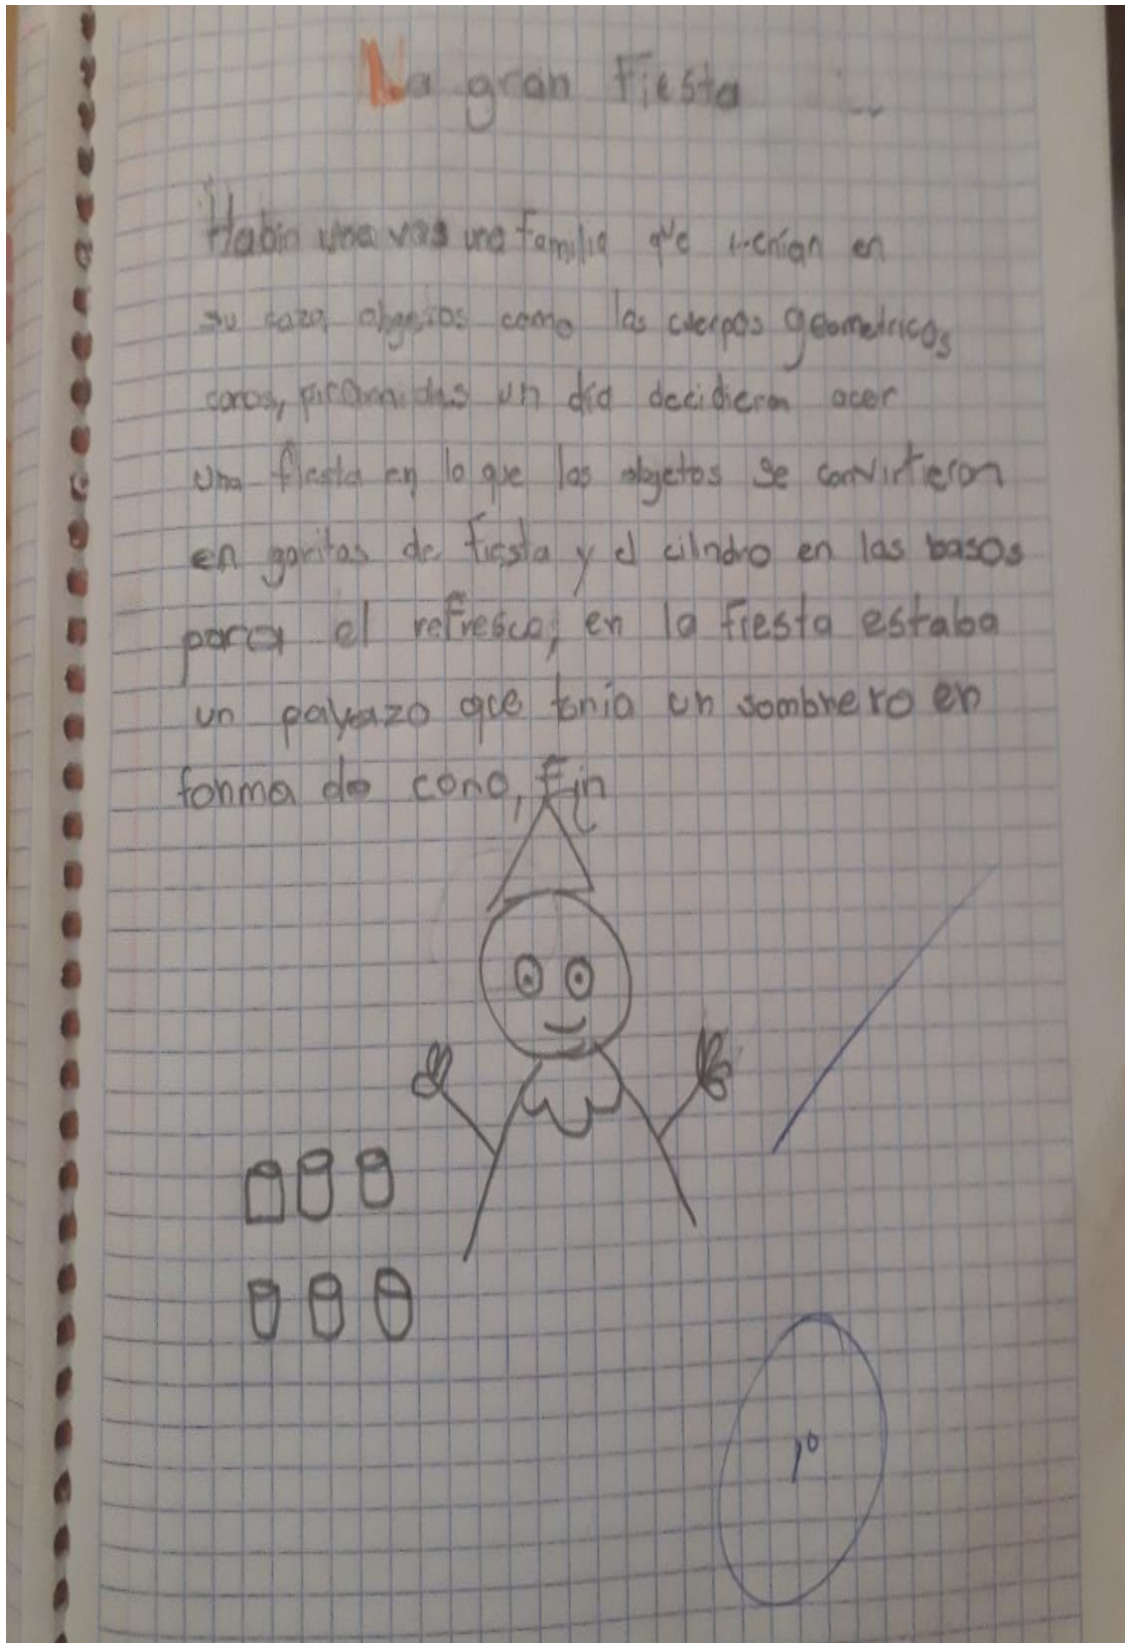 La gran fiesta
Habia una vas una familia que tenían en
su caza, objetos como los cuerpos geometricos
conos, piramides un día decidieron acer
una fiesta en lo que los objetos se convirtieron
en goritos de fiesta y el cilndro en los basos
para el refresco, en la fiesta estaba
un payazo que tenia un sombrero en
forma de cono, Fin
10